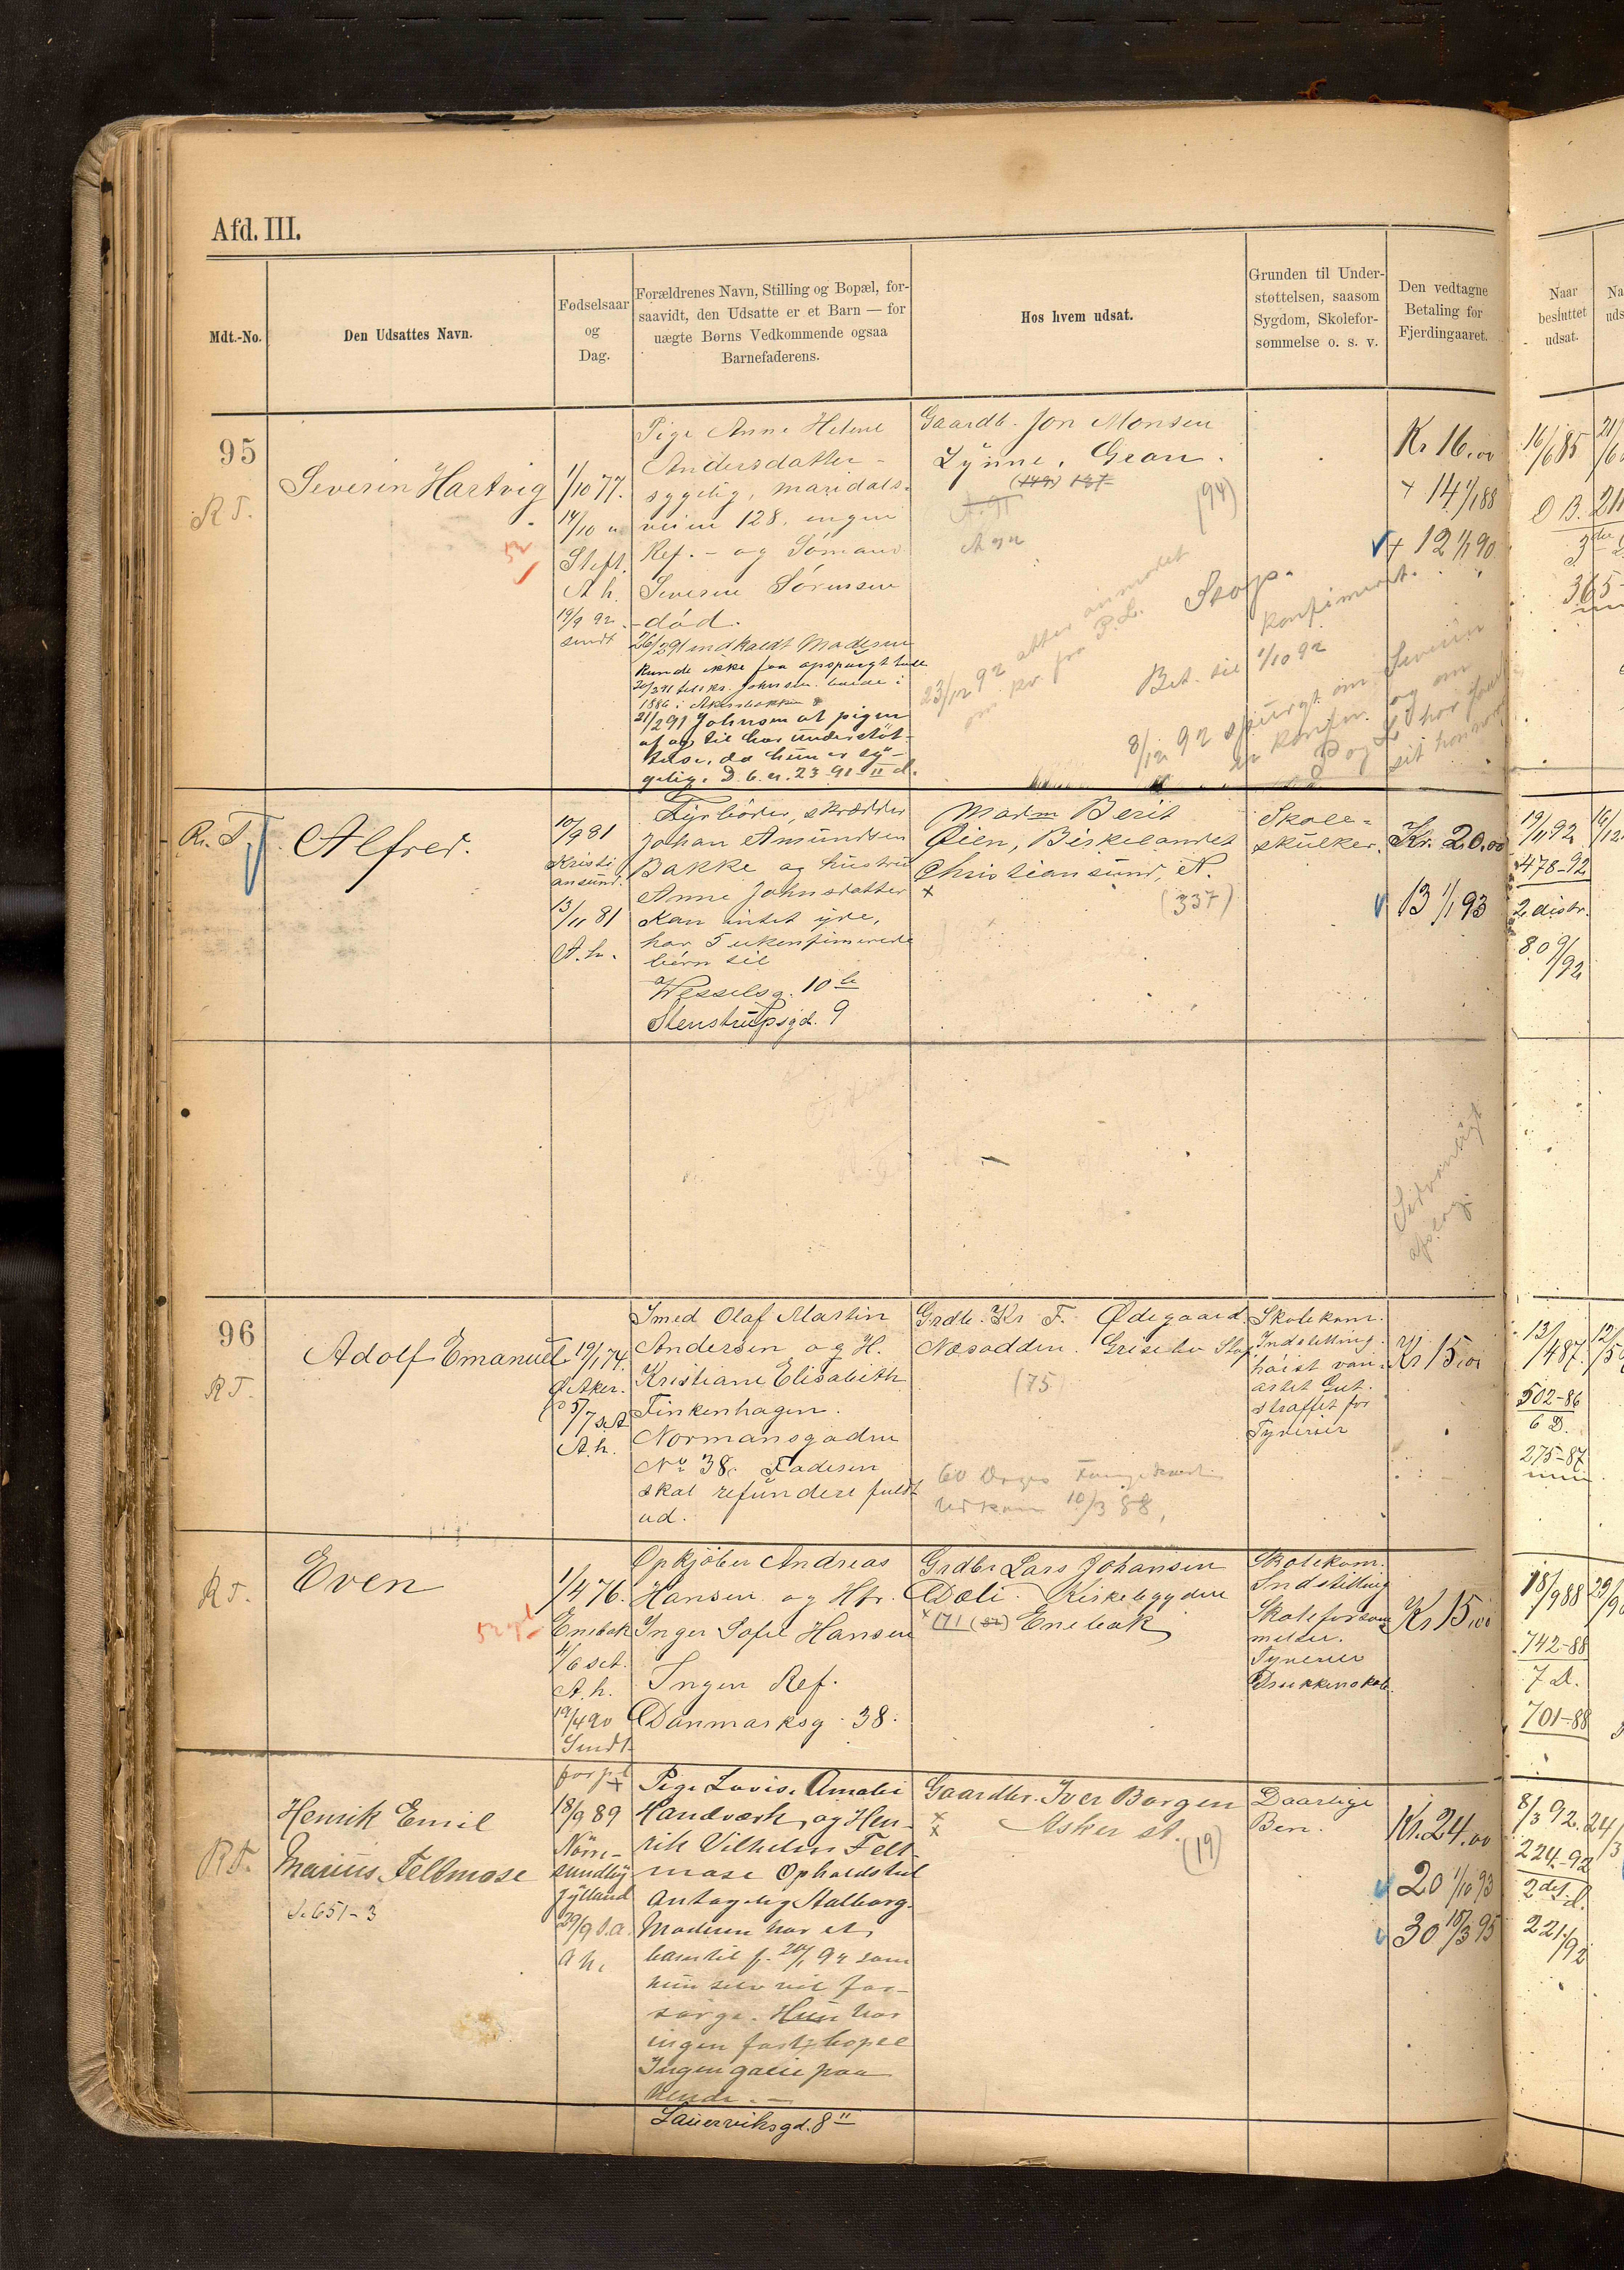 Afd. III.
Mdt.-No.
Den Udsattes Navn.
Fødselsaar
og
Dag.
Forældrenes Navn, Stilling og Bopæl, for-
saavidt, den Udsatte er et Barn — for
uægte Børns Vedkommende ogsaa
Barnefaderens.
Hos hvem udsat.
Grunden til Under-
støttelsen, saasom
Sygdom, Skolefor-
sømmelse o. s. v.
Den vedtagne
Betaling for
Fjerdingaaret.
Naar
besluttet
udsat.
Na
uds
95
R T.
Severin Hartvig
1/10 77.
14/10 u
Sleft.
A h.
19/9 92.
sendt
Pige Anne Helene
Andersdatter -
sygelig, Maridals-
veien 128, ingen
Ref. - og Sømand
Severin Sørensen
- død.
26/2 91 indkaldt Moderen
Kunde ikke faa opspurgt
1886 i Akersbakken
21/2 91 Johnson at pigen
af og til har understøt-
telse, da hun er sy-
gelig. D. 6. n. 23-91-II d.
Gaardb. Jon Monsen
Lynne, Gran.
(149) 137
(94)
23/12 92 atter anmodet
om kv. fra P.L.
Stop.
konfirmeret.
Bet. til 1/10 92
8/12 92 spurgt om Severin
er konfir. og om
Kr 16.00
+ 14 1/1 88
+ 12 1/1 90
16/6 85
21/6
D B. 211
3die
365-
R. T.
Alfred.
10/9 81
Kristi
ansund.
13/11 81
A. h.
Fyrbøder, skrædder
Johan Amundsen
Bakke og hustru
Anne Johnsdatter
Kan intet yde,
har 5 ukonfirmerede
børn til
Wesselsg. 10 b
Stenstrupsgd. 9
Madm Berit
Øien, Birkelandet
Christiansund, N.
+
(337)
Skole-
skulker.
Kr. 20.00
13 1/1 93
19/11 92
16/12
478-92
2 distr.
809/92
96
R T.
Adolf Emanuel
19/1 74.
Ø. Aker.
5/7 s.A
A h.
Smed Olaf Martin
Andersen og H.
Kristiane Elisabeth
Finkenhagen.
Normansgaden
No 38. Faderen
skal refundere fuldt
ud.
Grdb. Kr F. Ødegaard.
Næsodden.
(75)
60 Dages
Udkom 10/3 88,
Skolekom.
Indstilling.
høist van-
artet Gut.
straffet for
Tyverier
Kr 15.00
13/4 87.
12/5
502-86
6 D.
275-87
R T.
Even
1/4 76.
Enebak
4/6 s.t.
A. h.
19/4 90
Sendt
Opkjøber Andreas
Hansen og Htr.
Inger Sofie Hansen
Ingen Ref.
Danmarksg. 38.
Grdbr Lars Johansen
Dæli. Kirkebygden
+ 171 (82) Enebak
Skolekom.
Indstilling
Skoleforsøm
melser.
Tyverier
Drukkenskab.
Kr 15.00
18/9 88
29/9
742-88
7 d.
701-88
R T.
Henrik Emil
Marius Feltmose
J. 651-3
18/9 89
Nørre-
sundby
Jylland
29/9 s.a.
A h.
Pige Lovise Amalie
Handværk, og Hen-
rik Vilhelm Felt-
mose Opholdsted
Antagelig Aalborg.
Moderen har et
barn til f. 20/1 94 som
hun selv vil for-
sørge. Hun har
ingen fast bopæl
Ingen gave paa
hende. -
Lauerviksgd. 8 II
Gaardbr. Iver Borgen
Asker st.
(19)
Daarlige
Ben.
Kr. 24.00
20 1/10 93
30 15/3 95
8/3 92.
24/3
224-92
2det d.
221/92